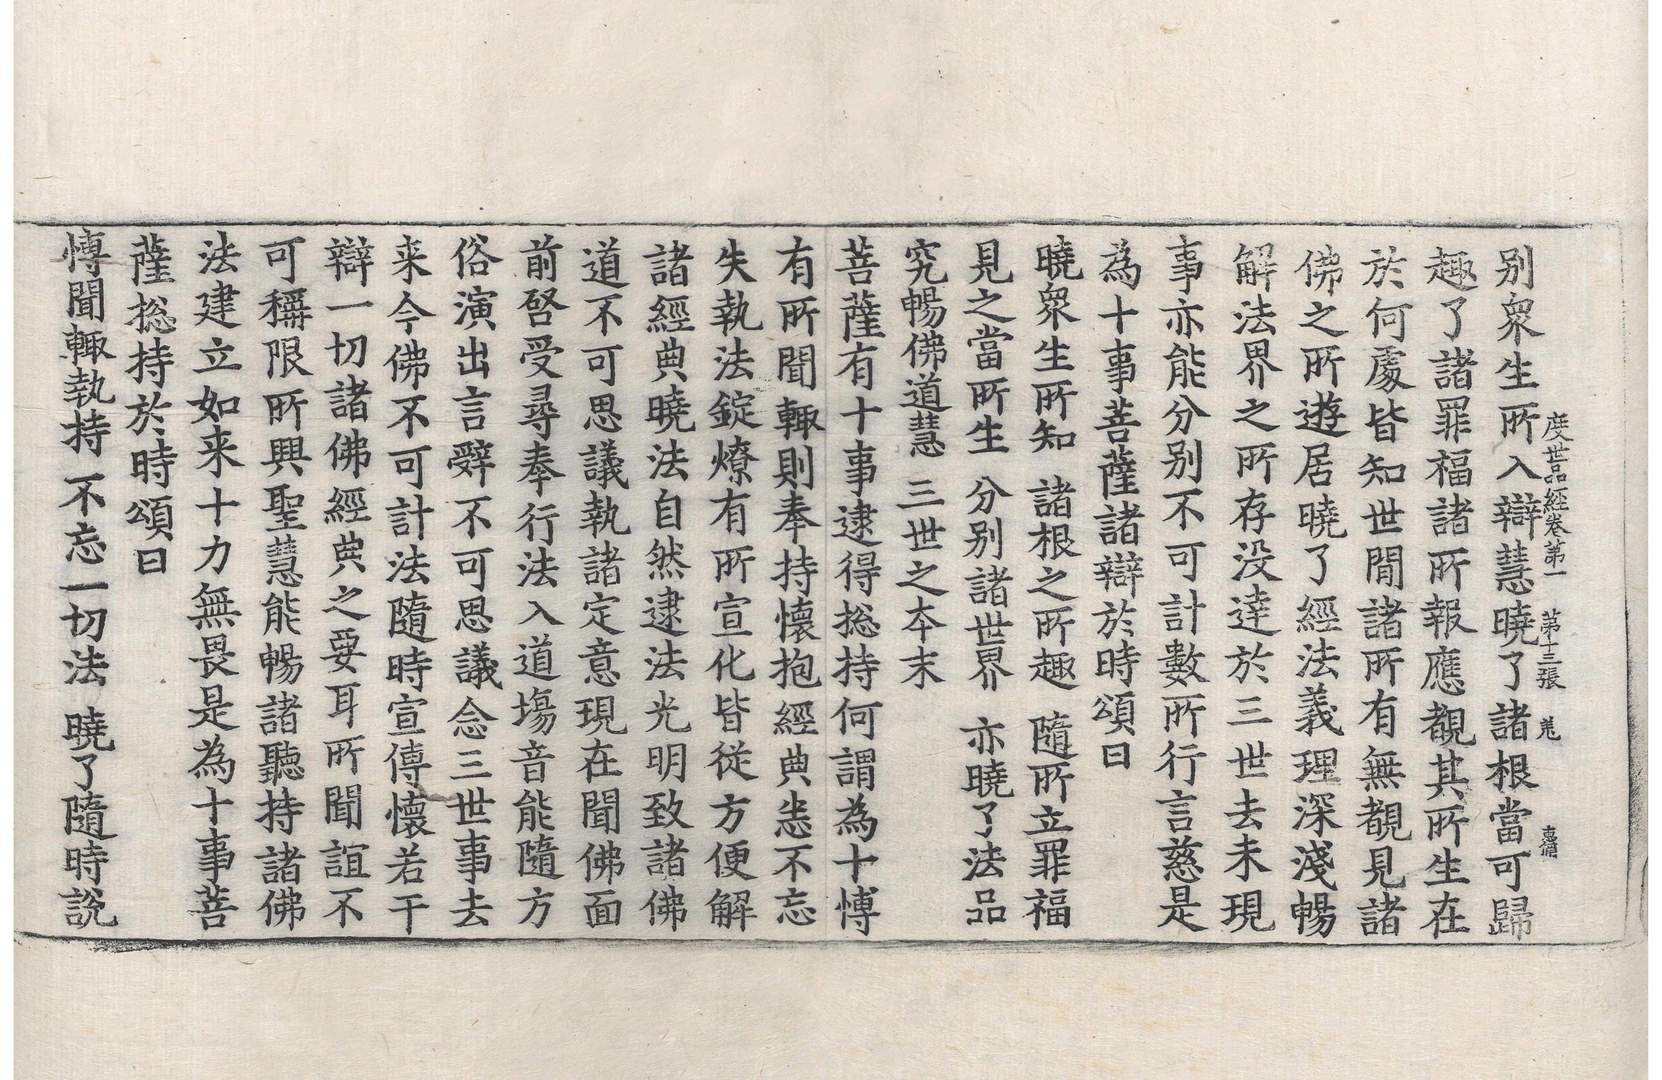 度世品經卷第一　第十三張　羗
别衆生所入辯慧曉了諸根當可歸
趣了諸罪福諸所報應覩其所生在
於何處皆知世間諸所有無覩見諸
佛之所遊居曉了經法義理深淺暢
解法界之所存没達於三世去未現
事亦能分别不可計數所行言慈是
為十事菩薩諸辯於時頌曰
曉衆生所知　諸根之所趣　隨所立罪福
見之當所生　分别諸世界　亦曉了法品
究暢佛道慧　三世之本末
菩薩有十事逮得捴持何謂為十愽
有所聞輙則奉持懷抱經典悉不忘
失執法錠燎有所宣化皆從方便解
諸經典曉法自然逮法光明致諸佛
道不可思議執諸定意現在聞佛面
前啓受尋奉行法入道場音能隨方
俗演出言辭不可思議念三世事去
来今佛不可計法隨時宣傳懷若干
辯一切諸佛經典之要耳所聞誼不
可稱限所興聖慧能暢諸聽持諸佛
法建立如来十力無畏是為十事菩
薩捴持於時頌曰
愽聞輙執持　不忘一切法　曉了隨時説